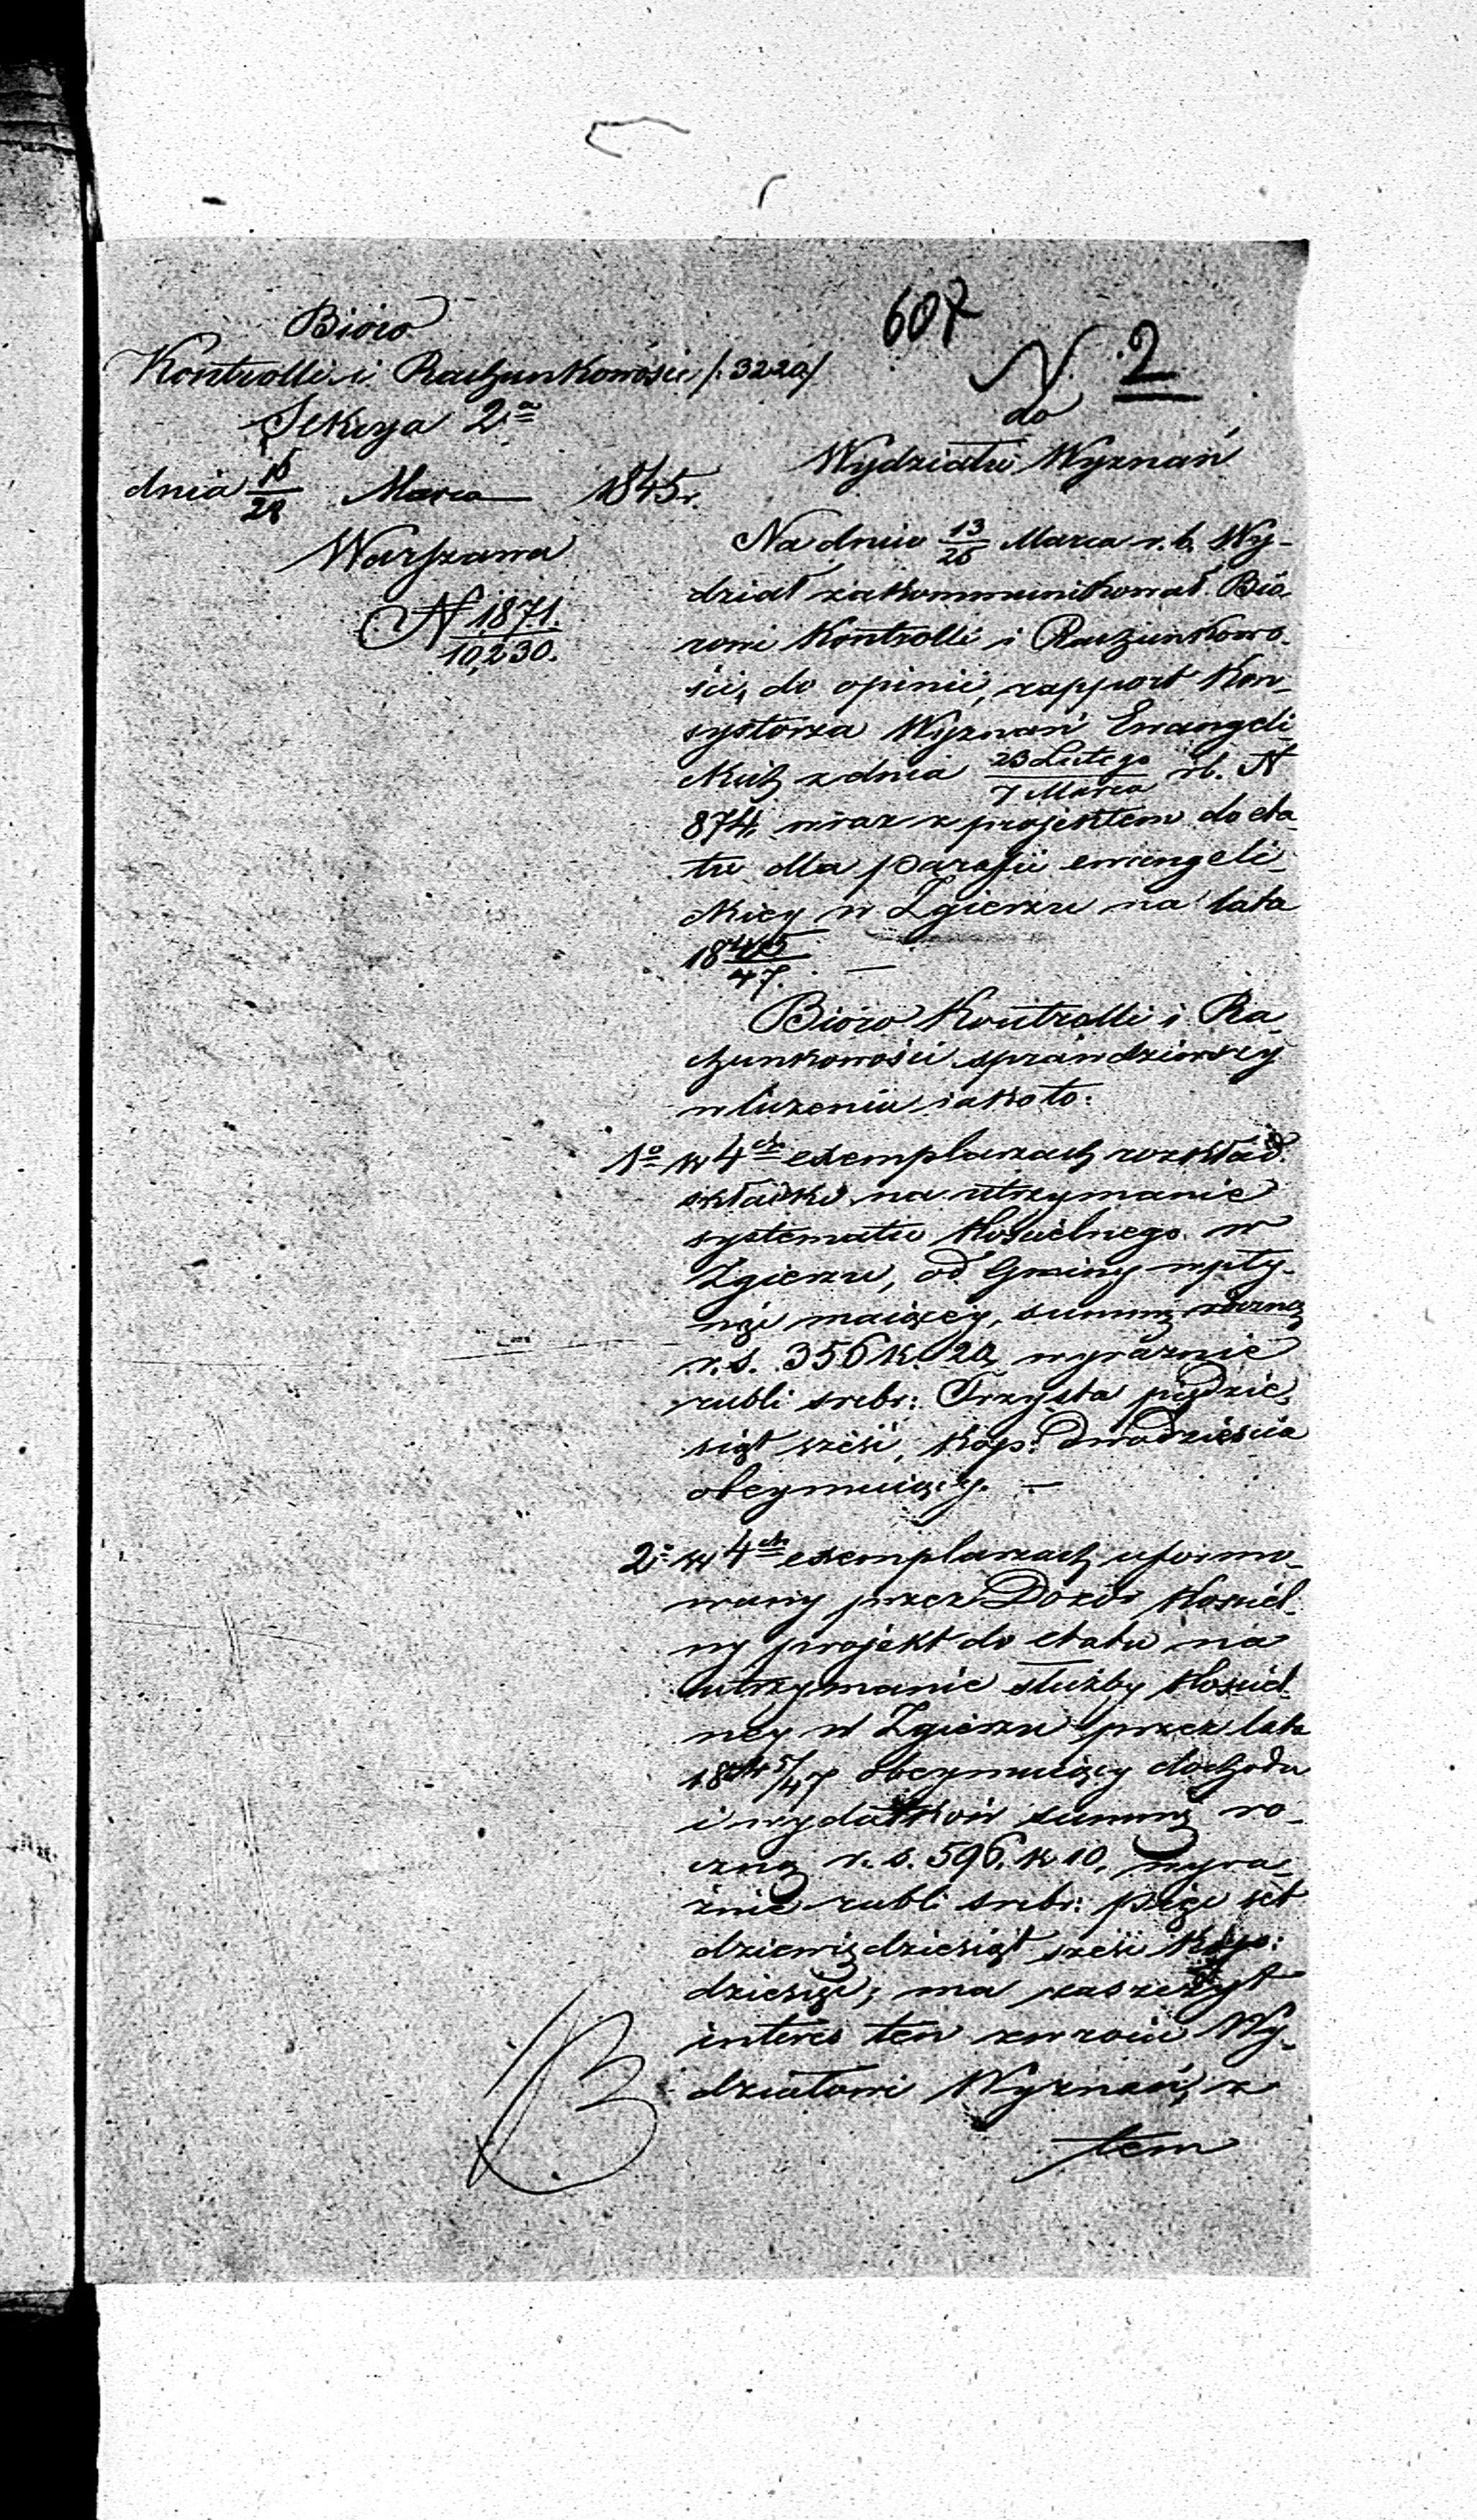 607
N. 2
Bióro
Kontrolli i Rachunkowości /:3220/
Sekcya 2ª
dnia 16/28 Marca 1845 r.
Warszawa
N 1871.
10,230.
do
Wydziału Wyznań
Na dniu 13/25 Marca r. b. Wy-
dział zakommunikował Bió-
rowi Kontrolli i Rachunkowo-
ści, do opinii, rapport Kon-
systorza Wyznań Ewangeli-
ckich z dnia 23 Lutego/7 Marca r.b. N
874, wraz z projektem do eta-
tu dla parafii ewangeli-
ckiey w Zgierzu na lata
1845/47. —
Bióro Kontrolli i Ra-
chunkowości sprawdziwszy
w liczeniu iako to:
1º w 4ch exemplarzach rozkład
składki na utrzymanie
systematu kościelnego w
Zgierzu, od Gminy wpły-
nąć maiącey, summę roczną
r. s. 356 k. 20, wyraźnie
rubli srebr: Trzysta pięćdzie-
siąt sześć, kop: dwadzieścia
obeymuiący. —
2º w 4ch exemplarzach uformo-
wany przez Dozór Kościel-
ny projekt do etatu na
utrzymanie służby kościel-
ney w Zgierzu przez lata
1845/47 obeymuiący dochodu
i wydatków summę ro-
czną r. s. 596. k 10, wyra-
źnie rubli srebr: pięć set
dziewięćdziesiąt sześć kop:
dziesięć; ma zaszczyt
interes ten zwrócić Wy-
działowi Wyznań, z
tem